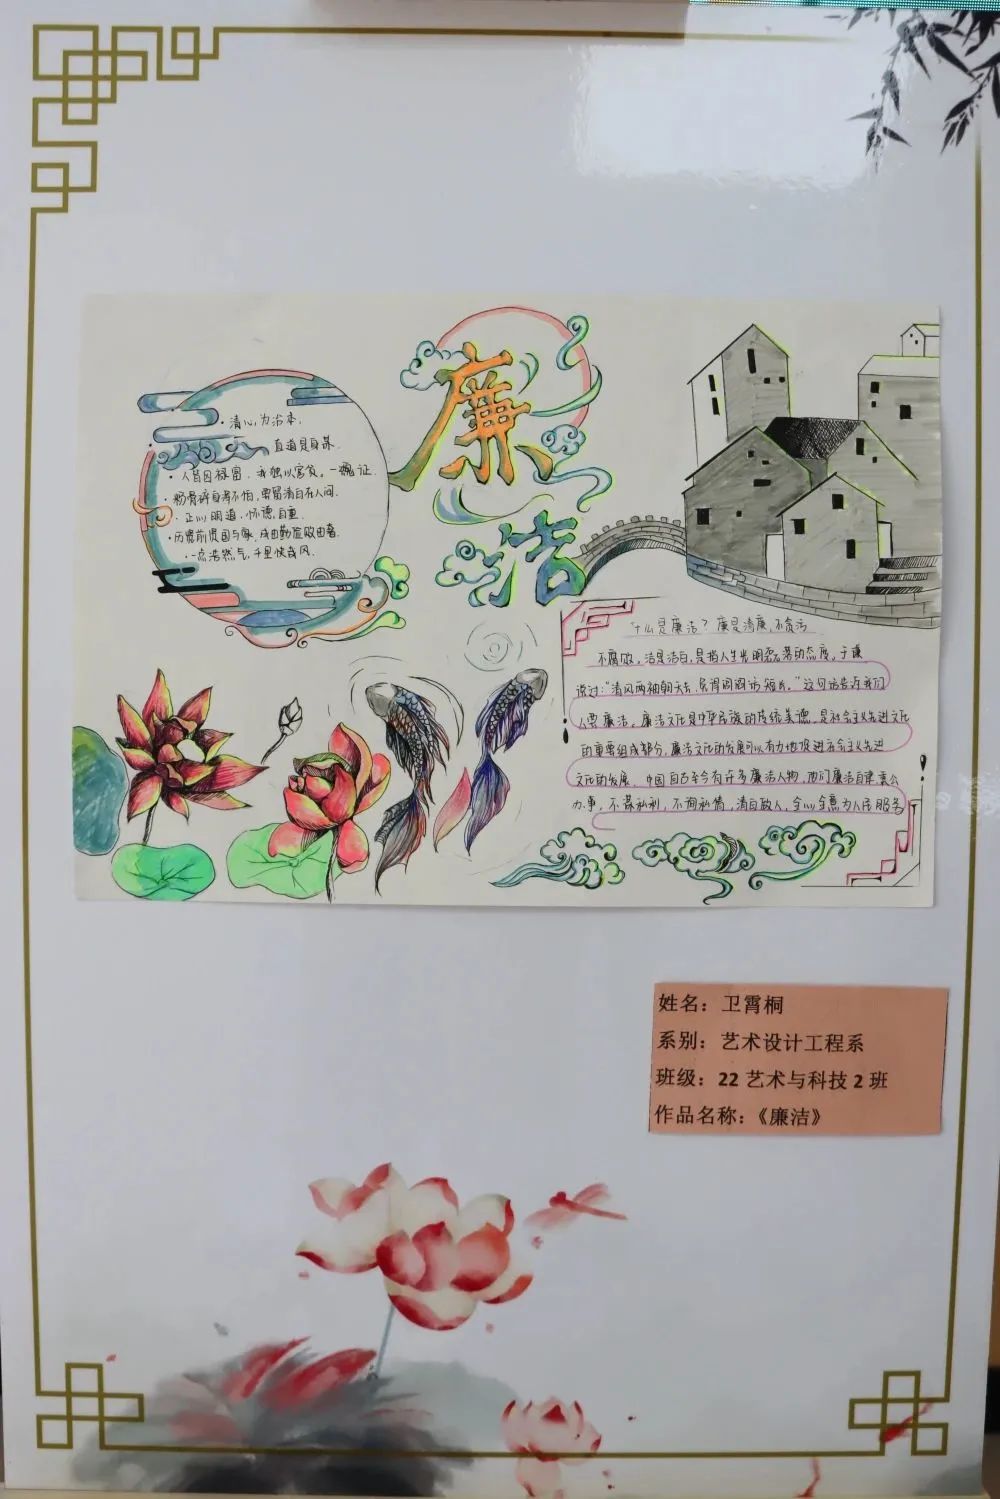 廉洁
清心为治本,
直道是身谋.
人皆因禄富,我独以官贫,一槐证.
粉骨碎身浑不怕,要留清白在人间.
正心明道,怀德自重.
历览前贤国与家,成由勤俭败由奢.
一点浩然气,千里快哉风.
什么是廉洁?廉是清廉,不贪污
不腐败,洁是洁白,是指人生光明磊落的态度,于谦
说过:“清风两袖朝天去,免得闾阎话短长.”这句话告诉我们
人要廉洁.廉洁文化是中华民族的传统美德,是社会主义先进文化
的重要组成部分,廉洁文化的发展可以有力地促进社会主义先进
文化的发展.中国自古至今有许多廉洁人物,他们廉洁自律,秉公
办事,不谋私利,不徇私情,清白做人,全心全意为人民服务
姓名：卫霄桐
系别：艺术设计工程系
班级：22 艺术与科技 2 班
作品名称：《廉洁》